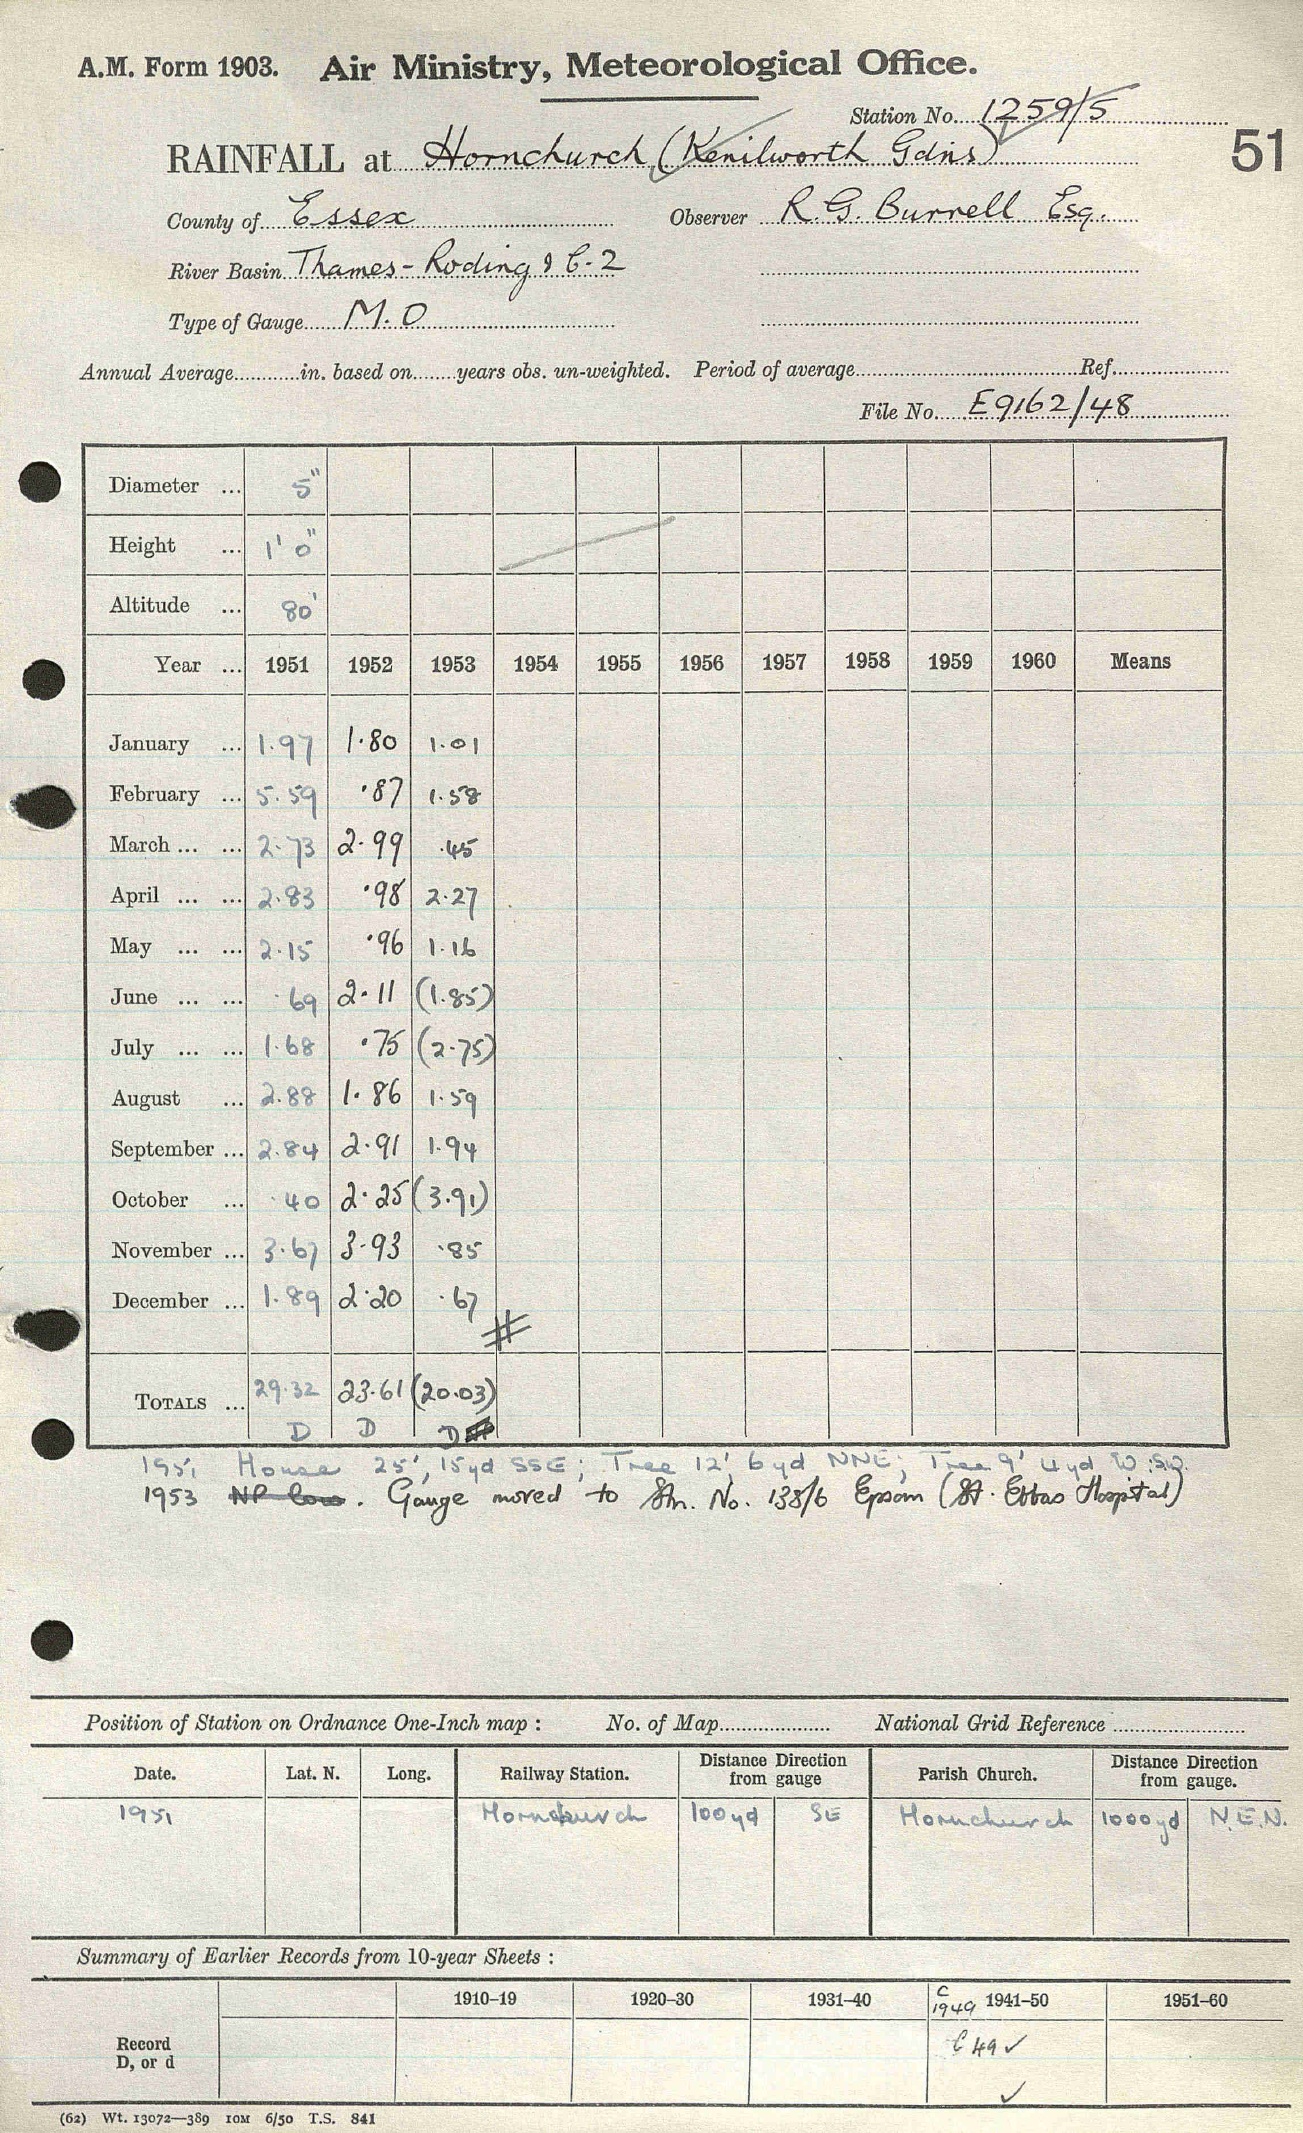 A.M. Form 1903. Air Ministry, Meteorological Office.
Station No. 1259/5
RAINFALL at Hornchurch (Kenilworth Gdns)
51
County of Essex Observer R. G. Burrell Esq.
River Basin Thames - Roding & C-2
Type of Gauge M.O
Annual Average............in. based on........years obs. un-weighted. Period of average........Ref........
File No. E9162/48
Diameter ... 5"
Height ... 1' 0"
Altitude ... 80'
Year ... 1951 1952 1953 1954 1955 1956 1957 1958 1959 1960 Means
January ... 1.97 1.80 1.01
February ... 5.59 .87 1.58
March ... ... 2.73 2.99 .45
April ... ... 2.83 .98 2.27
May ... ... 2.15 .96 1.16
June ... ... .69 2.11 (1.85)
July ... ... 1.68 .75 (2.75)
August ... 2.88 1.86 1.59
September ... 2.84 2.91 1.94
October ... .40 2.25 (3.91)
November ... 3.67 3.93 .85
December ... 1.89 2.20 .67
TOTALS ... 29.32 23.61 (20.03)
D D D
1951 House 25', 15yd SSE; Tree 12', 6yd NNE; Tree 9' 4yd W.SW.
1953 NP low. Gauge moved to Stn. No. 138/6 Epsom (St. Ebbas Hospital)
Position of Station on Ordnance One-Inch map : No. of Map........ National Grid Reference ........
Date. Lat. N. Long. Railway Station. Distance Direction from gauge Parish Church. Distance Direction from gauge.
1951 Hornchurch 100yd SE Hornchurch 1000yd N.E.N.
Summary of Earlier Records from 10-year Sheets :
1910–19 1920–30 1931–40 C 1949 1941–50 1951–60
Record
D, or d
C 49 ✓
✓
(62) Wt. 13072—389 10M 6/50 T.S. 841